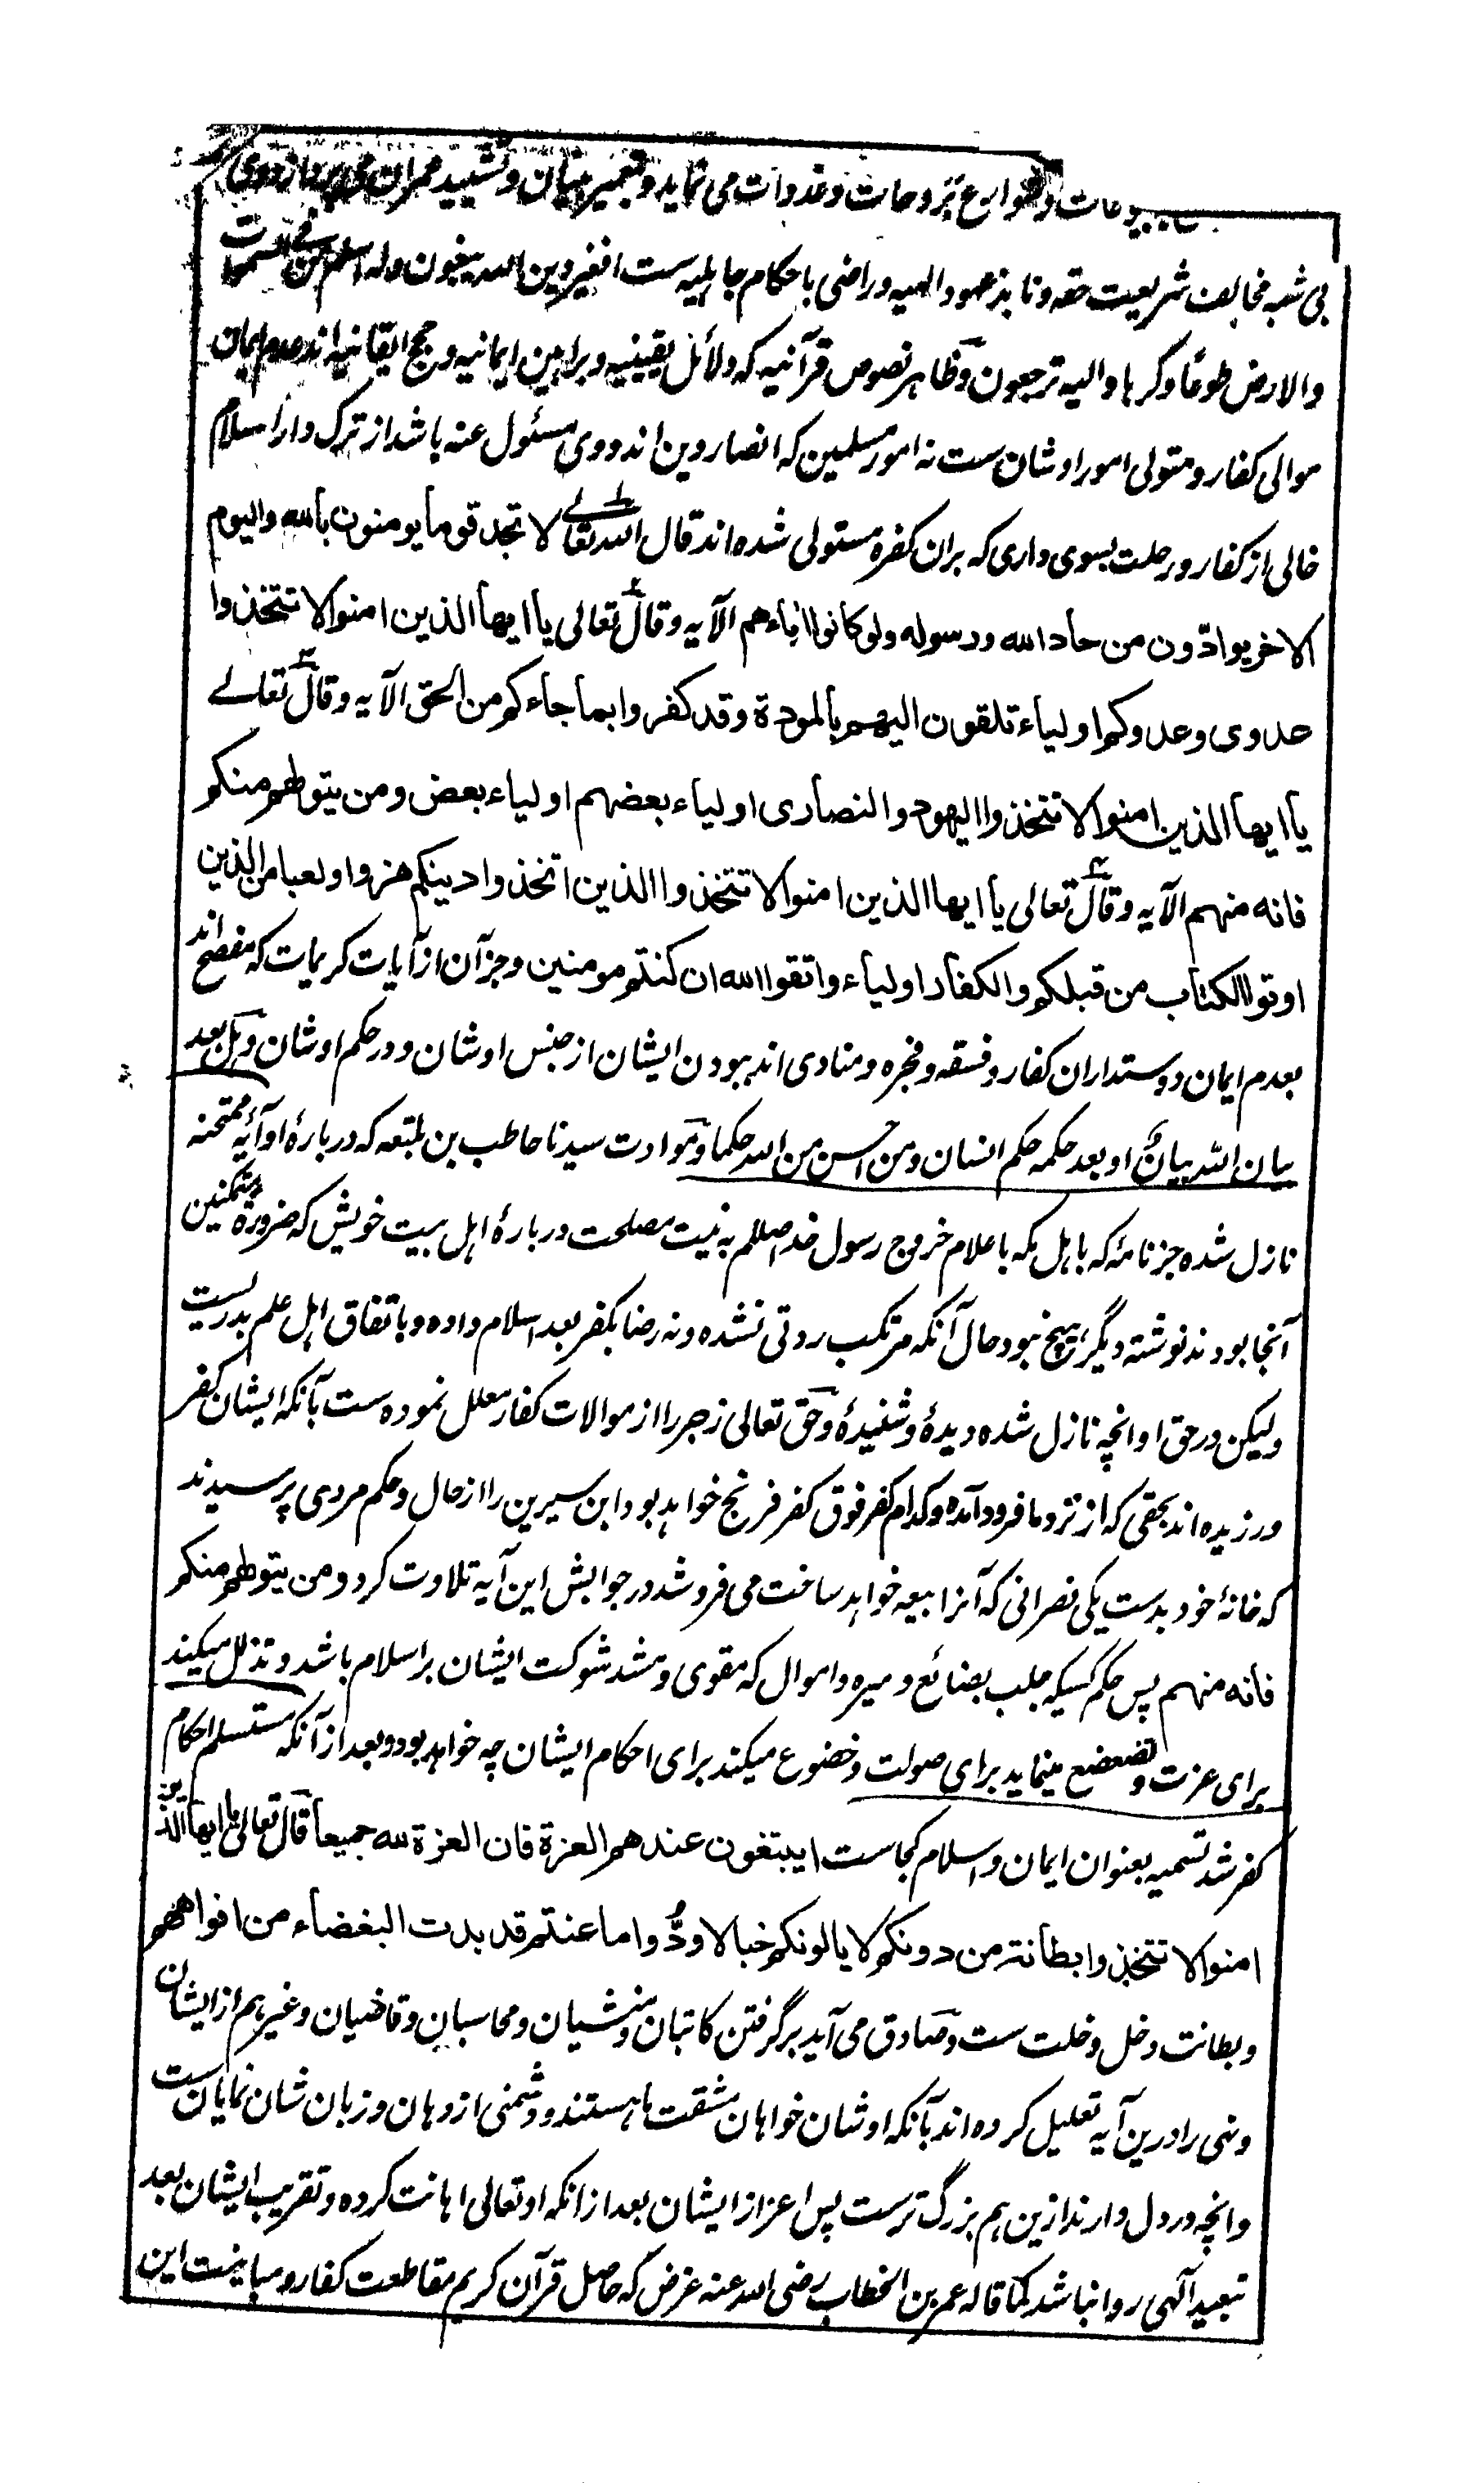 و غدوات می نماید و تعمیر بنیان و تشیید عمران می پردازد وی
بی شبه مخالف شریعت حقه و نابذ عهود الهیه و راضی باحکام جاهلیه ست افغیر دین الله یبغون وله اسلم من فی السموات
والارض طوعًا وکرها والیه ترجعون و ظاهر نصوص قرآنیه که دلائل یقینیه و براهین ایمانیه و حجج ایقانیه اند عدم ایمان
موالی کفار و متولی امور اوشان ست نه امور مسلمین که انصار دین اند و وی مسئول عنه باشد از ترک دار اسلام
خالی از کفار و رحلت بسوی داری که بران کفره مستولی شده اند قال الله تعالے لا تجد قوما یومنون بالله والیوم
الاخر یوادّون من حاد الله ورسوله ولو کانوا اٰباءهم الآیه وقال تعالی یا ایها الذین امنوا لا تتخذوا
عدوی وعدوکم اولیاء تلقون الیهم بالمودة وقد کفروا بما جاءکم من الحق الآیه وقال تعالے
یا ایها الذین امنوا لا تتخذوا الیهود والنصاری اولیاء بعضهم اولیاء بعض ومن یتولهم منکم
فانه منهم الآیه وقال تعالی یا ایها الذین امنوا لا تتخذوا الذین اتخذوا دینکم هزوا ولعبا من الذین
اوتوا الکتاب من قبلکم والکفار اولیاء واتقوا الله ان کنتم مومنین و جز آن از آیات کریمات که مفصح اند
بعدم ایمان دوستداران کفار و فسقه و فجره و منادی اند ببودن ایشان از جنس اوشان و در حکم اوشان و هل بعد
بیان الله بیانٌ او بعد حکمه حکم انسان ومن احسن من الله حکما و موادت سیدنا حاطب بن بلتعه که درباره او آیهٔ ممتحنه
نازل شده جز نامهٔ که باهل مکه باعلام خروج رسول خدا صللم به نیت مصلحت دربارهٔ اهل بیت خویش که ضرورة متمکنین
آنجا بودند نوشته دیگر هیچ نبود حال آنکه مرتکب ردتی نشده و نه رضا بکفر بعد اسلام داده و باتفاق اهل علم بدریست
ولیکن در حق او انچه نازل شده دیدهٔ و شنیدهٔ و حق تعالی زجر را از موالات کفار معلل نموده ست بآنکه ایشان کفر
ورزیده اند بحقی که از نزد ما فرود آمده و کدام کفر فوق کفر فرنج خواهد بود ابن سیرین را از حال و حکم مردی پرسیدند
که خانهٔ خود بدست یکی نصرانی که آنرا بیعه خواهد ساخت می فروشد در جوابش این آیه تلاوت کرد ومن یتولهم منکم
فانه منهم پس حکم کسیکه جلب بضائع و میره و اموال که مقوی و مشد شوکت ایشان بر اسلام باشد و تذلل میکند
برای عزت و تضعضع مینماید برای صولت و خضوع میکند برای احکام ایشان چه خواهد بود و بعد از آنکه مستسلم احکام
کفر شد تسمیه بعنوان ایمان و اسلام کجاست ایبتغون عندهم العزة فان العزة لله جمیعاً قال تعالی یا ایها الذین
امنوا لا تتخذوا بطانة من دونکم لا یالونکم خبالا ودُّوا ما عنتم قد بدت البغضاء من افواههم
و بطانت دخل و خلت ست و صادق می آید بر گرفتن کاتبان و منشیان و محاسبان و قاضیان و غیرهم از ایشان
و نهی را درین آیه تعلیل کرده اند بآنکه اوشان خواهان مشقت ما هستند و دشمنی از دهان و زبان شان نمایان ست
وانچه در دل دارند ازین هم بزرگ ترست پس اعزاز ایشان بعد ازانکه او تعالی اهانت کرده و تقریب ایشان بعد
تبعید الٓهی روا نباشد کما قاله عمر بن الخطاب رضی الله عنه غرض که حاصل قرآن کریم مقاطعت کفار و مباینت این